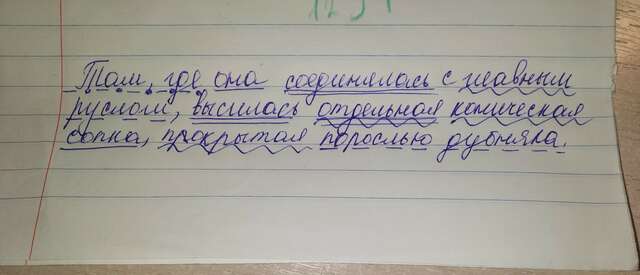 Там, где она соединялась с главным
руслом, высилась отдельная коническая
сопка, покрытая порослью дубняка.